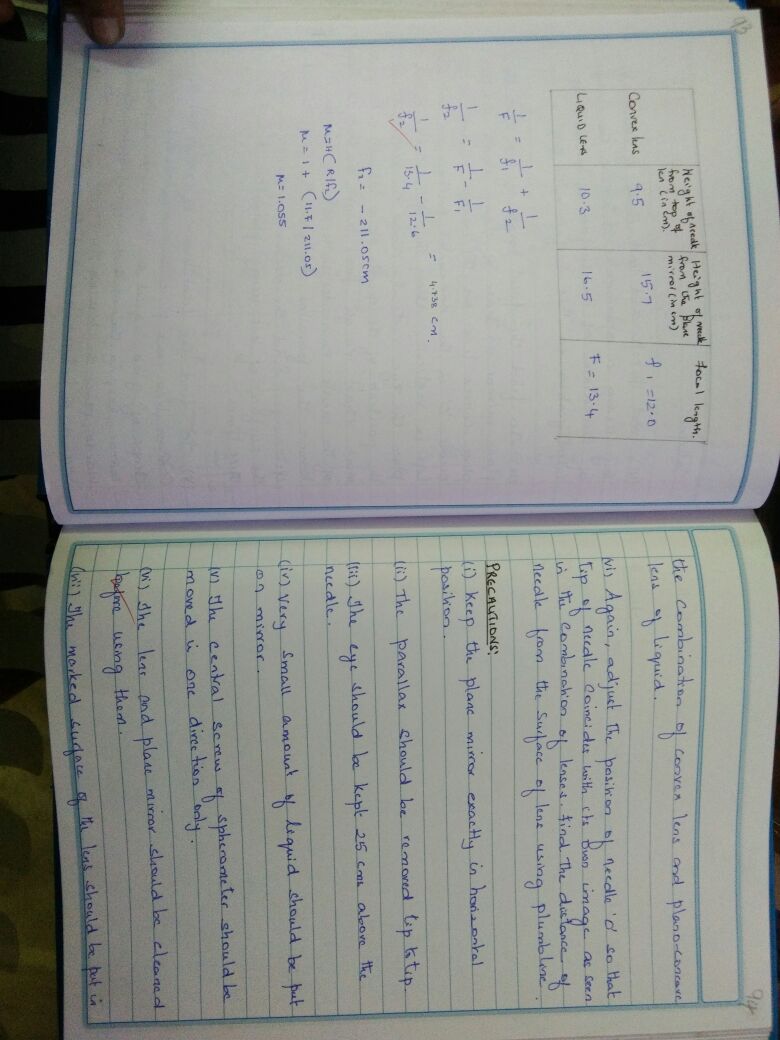 93
Height of needle from top of len (in cm).
Height of needle from the plane mirror (in cm)
Focal length.
Convex lens
9.5
15.7
f1 = 12.0
LIQUID Lens
10.3
16.5
F = 13.4
1/F = 1/f1 + 1/f2
1/f2 = 1/F - 1/F1
1/f2 = 1/13.4 - 1/12.6 = 4.738 cm.
f2 = -211.05cm
μ=1+(R/f2)
μ = 1 + (11.7/211.05)
μ=1.055
94
the combination of convex lens and plano-concave
lens of liquid.
(vi) Again, adjust the position of needle 'o' so that
tip of needle coincides with its own image as seen
in the combination of lenses. find the distance of
needle from the surface of lens using plumbline.
PRECAUTIONS:
(i) keep the plane mirror exactly in horizontal
position.
(ii) The parallax should be removed tip to tip.
(iii) The eye should be kept 25 cms above the
needle.
(iv) very small amount of liquid should be put
on mirror.
(v) The central screw of spherometer should be
moved in one direction only.
(vi) The lens and plane mirror should be cleaned
before using them.
(vii) The marked surface of the lens should be put in